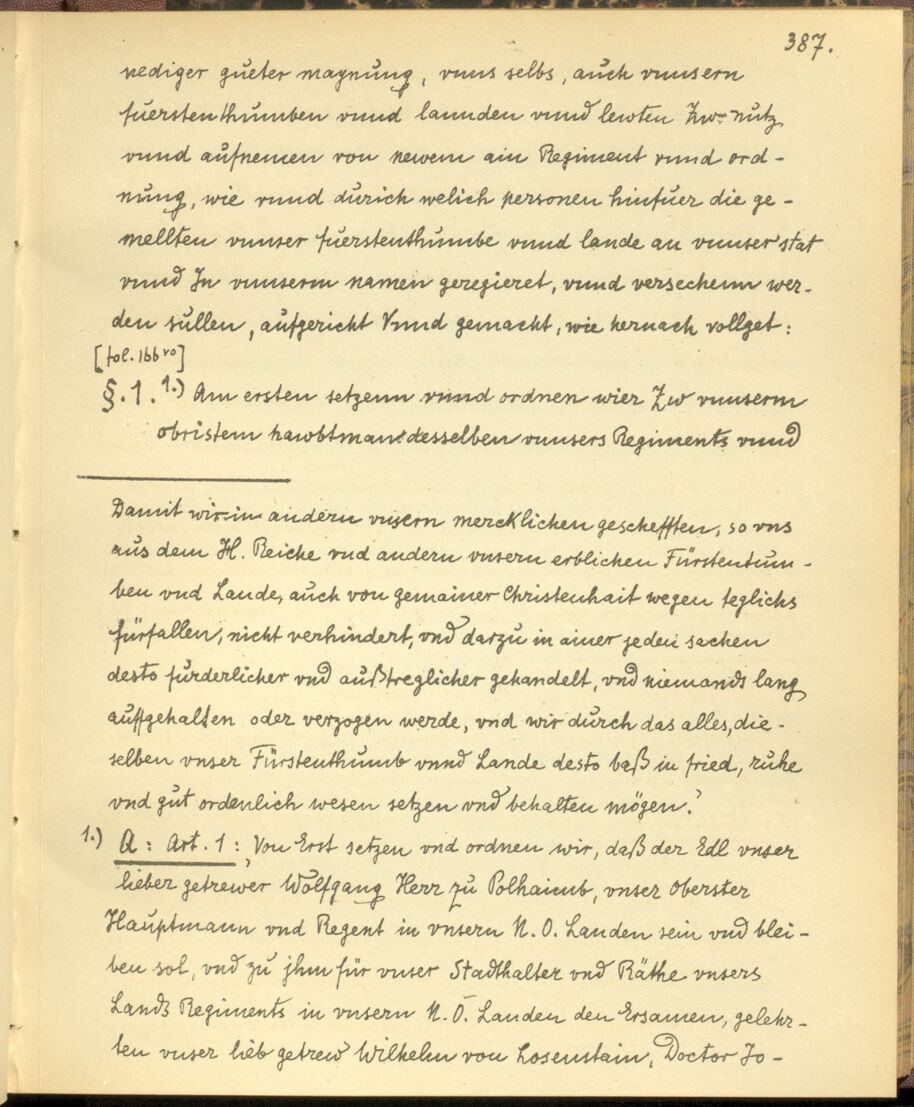 387.
nediger gueter maynung, vnns selbs, auch vnnsern
fuerstenthumben vnnd lannden vnnd lewten Zw nutz
vnnd aufnemen von newem ain Regiment vnnd ord-
nung, wie vnnd durich welich personen hinfuer die ge-
mellten vnnser fuerstenthumbe vnnd lande an vnnser stat
vnnd In vnnserm namen geregieret, vnnd versechenn wer-
den sullen, aufgericht Vnnd gemacht, wie hernach vollget:
[fol. 166 vo]
§. 1. 1.) Am ersten setzenn vnnd ordnen wier Zw vnnserm
obristem hawbtman desselben vnnsers Regiments vnnd
Damit wir in andern vnsern mercklichen geschefften, so vns
aus dem H. Reiche vnd andern vnsern erblichen Fürstentum-
ben vnd Lande, auch von gemainer Christenhait wegen teglichs
fürfallen, nicht verhindert, vnd darzu in ainer jeden sachen
desto fürderlicher vnd außtreglicher gehandelt, vnd niemands lang
auffgehalten oder verzogen werde, vnd wir durch das alles, die-
selben vnser Fürstenthumb vnnd Lande desto baß in fried, ruhe
vnd gut ordenlich wesen setzen vnd behalten mögen.'
1.) A: Art. 1: 'Von Erst setzen vnd ordnen wir, daß der Edl vnser
lieber getrewer Wolfgang Herr zu Polhaimb, vnser Oberster
Hauptmann vnd Regent in vnsern N. O. Landen sein vnd blei-
ben sol, vnd zu jhm für vnser Stadthalter vnd Räthe vnsers
Lands Regiments in vnsern N. Ö. Landen den Ersamen, gelehr-
ten vnser lieb getrew Wilhelm von Losenstain, Doctor Jo-